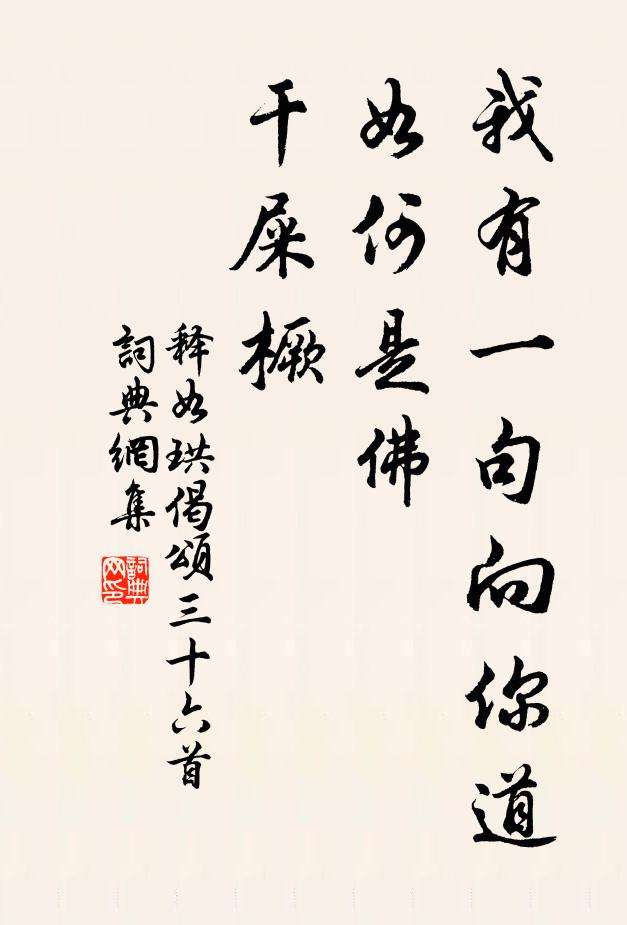 我有一句向你道
如何是佛
干屎橛
释如珙偈颂三十六首
詞典網集
詞典网印